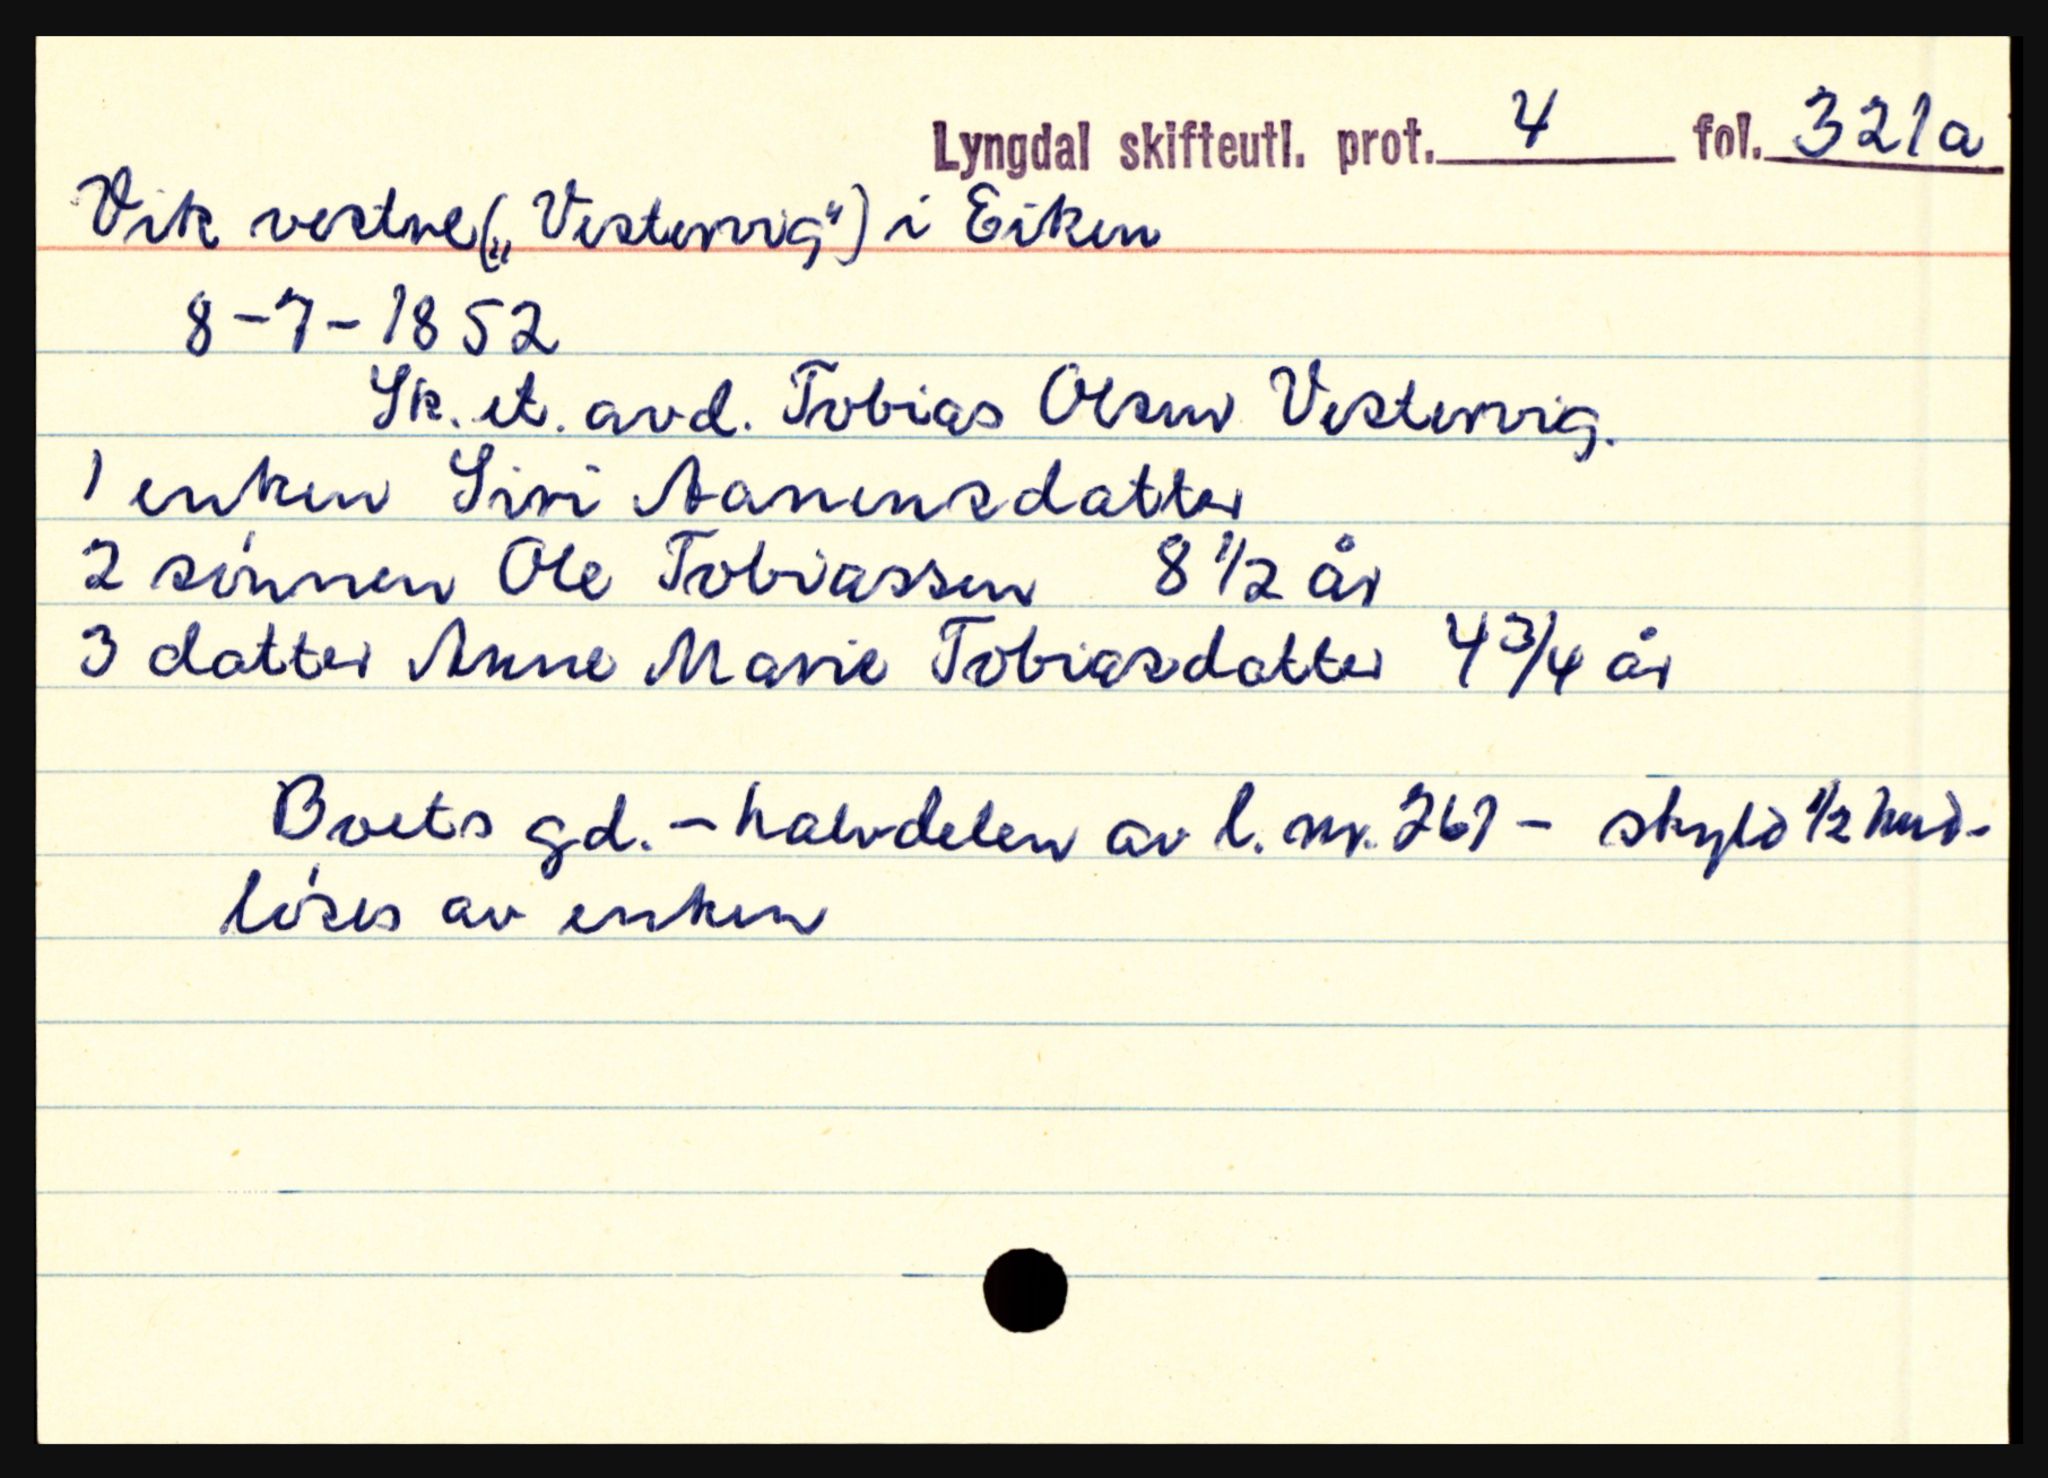 Lyngdal skifteutl. prot. 4 fol. 321a
Vik vestre („Vestervig") i Eiken
8-7-1852
Sk. et. avd. Tobias Olsen Vestervig.
1 enken Siri Aanensdatter
2 sønnen Ole Tobiassen 8 1/2 år
3 datter Anne Marie Tobiasdatter 4 3/4 år
Boets gd. - halvdelen av l. nr. 261 - skyld 1/2 hud -
løses av enken